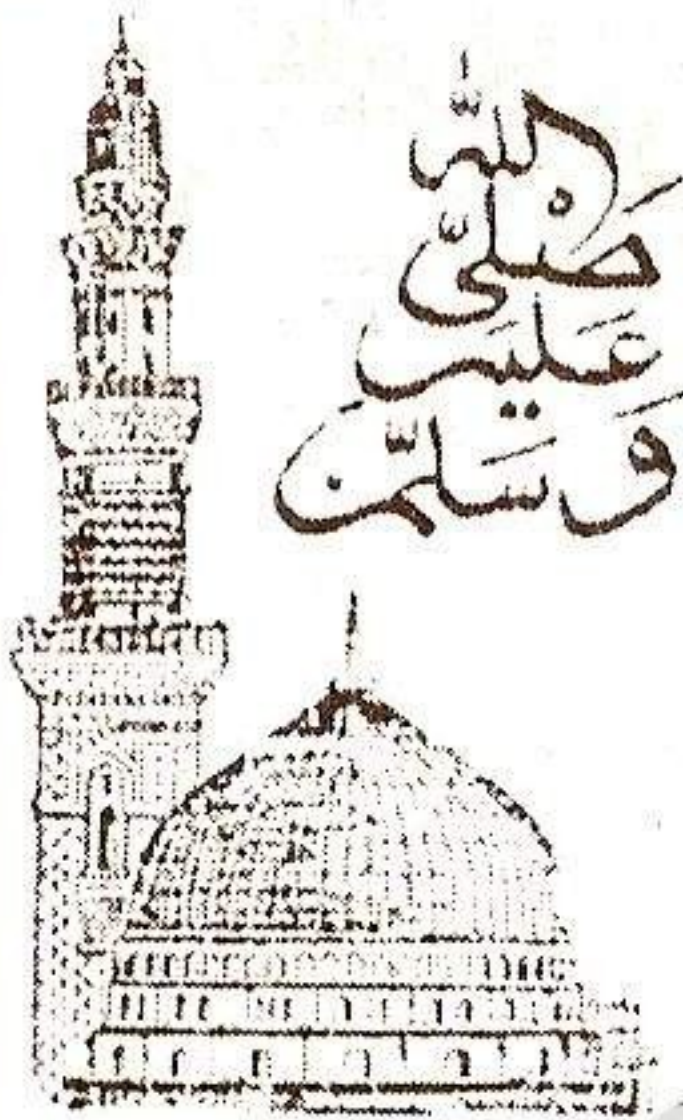 صَلَّى
اللّٰه
عَلَيه
وَسَلَّم